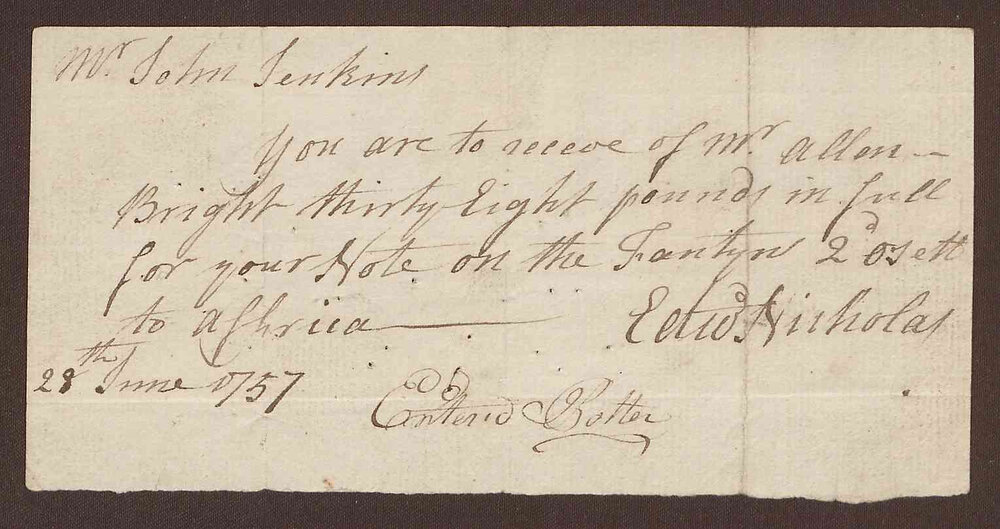 Mr John Jenkins
You are to receve of Mr Allen
Bright thirty Eight pounds in full
for your Note on the Fantyn 2d
to Affriica
Edwd Nicholas
28th June 1757
Enterd